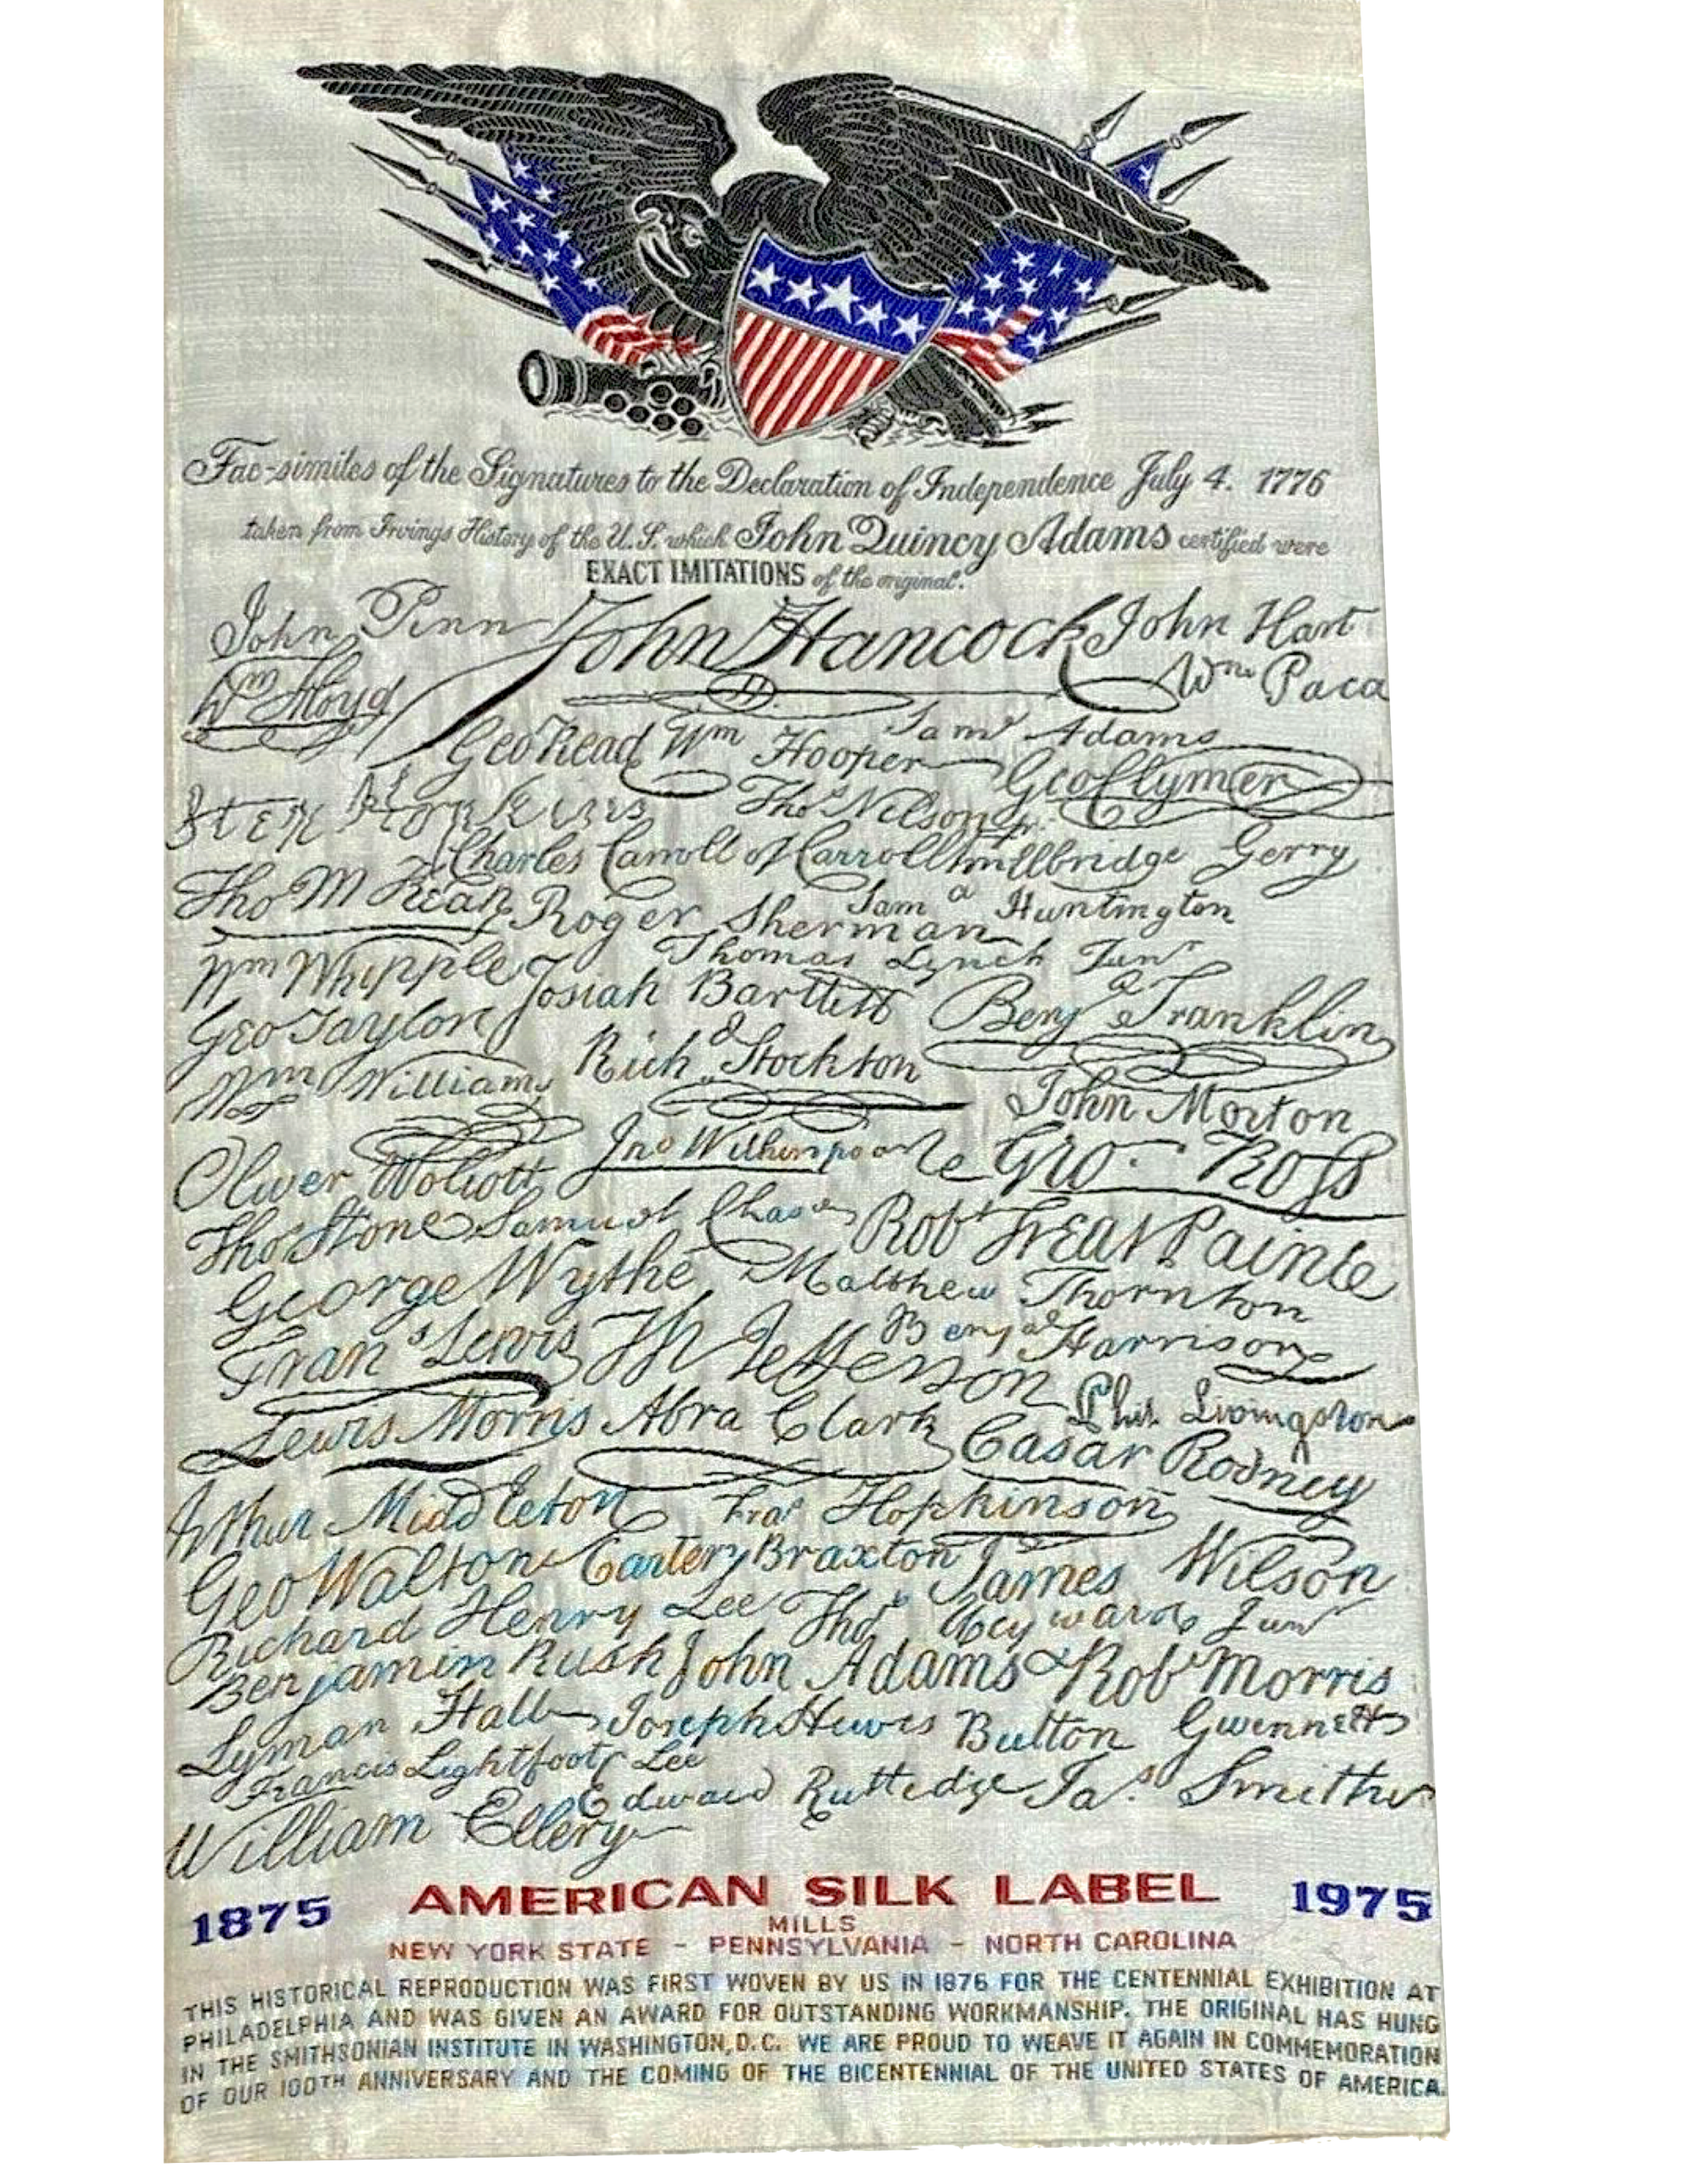 Fac-similes of the Signatures to the Declaration of Independence July 4. 1776
taken from Irvings History of the U.S. which John Quincy Adams certified were
EXACT IMITATIONS of the original.
John Penn John Hancock John Hart
Wm Floyd Wm Paca
Geo Read Wm Hooper Saml Adams
Geo Clymer
Step Hopkins Thos Nelson jr.
Charles Carroll of Carrollton Elbridge Gerry
Tho M Kean Roger Sherman Saml Huntington
Wm Whipple Thomas Lynch Junr
Josiah Bartlett Benja Franklin
Geo Taylor Richd Stockton
Wm Williams John Morton
Oliver Wolcott Jno Witherspoon Geo. Ross
Tho Stone Samuel Chase Robt Treat Paine
George Wythe Matthew Thornton
Frans Lewis Th Jefferson Benja Harrison
Lewis Morris Abra Clark Phil. Livingston
Casar Rodney
Arthur Middleton Fras Hopkinson
Geo Walton Carter Braxton James Wilson
Richard Henry Lee Thos Heyward Junr
Benjamin Rush John Adams Robt Morris
Lyman Hall Joseph Hewes Button Gwinnett
Francis Lightfoot Lee
William Ellery Edward Rutledge Jas. Smith
1875 AMERICAN SILK LABEL 1975
MILLS
NEW YORK STATE - PENNSYLVANIA - NORTH CAROLINA
THIS HISTORICAL REPRODUCTION WAS FIRST WOVEN BY US IN 1876 FOR THE CENTENNIAL EXHIBITION AT
PHILADELPHIA AND WAS GIVEN AN AWARD FOR OUTSTANDING WORKMANSHIP. THE ORIGINAL HAS HUNG
IN THE SMITHSONIAN INSTITUTE IN WASHINGTON, D.C. WE ARE PROUD TO WEAVE IT AGAIN IN COMMEMORATION
OF OUR 100TH ANNIVERSARY AND THE COMING OF THE BICENTENNIAL OF THE UNITED STATES OF AMERICA.